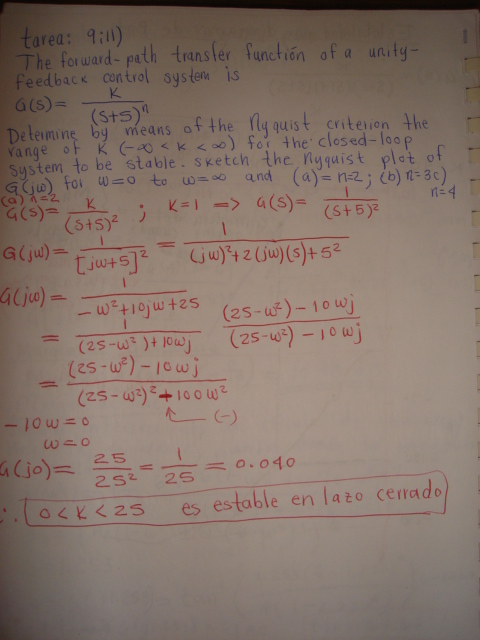 tarea: 9;11)
The forward-path transfer function of a unity-
feedback control system is
G(s)= K / (s+5)^n
Determine by means of the Nyquist criterion the
range of K (-∞ < K < ∞) for the closed-loop
system to be stable. sketch the Nyquist plot of
G(jω) for ω=0 to ω=∞ and (a)=n=2; (b) n=3 c) n=4
(a) n=2
G(s)= K / (s+5)^2 ; K=1 => G(s)= 1 / (s+5)^2
G(jω)= 1 / [jω+5]^2 = 1 / (jω)^2+2(jω)(5)+5^2
G(jω)= 1 / -ω^2+10jω+25
= 1 / (25-ω^2)+10ωj (25-ω^2)-10ωj / (25-ω^2)-10ωj
= (25-ω^2)-10ωj / (25-ω^2)^2+100ω^2
(-)
-10ω=0
ω=0
G(j0)= 25 / 25^2 = 1 / 25 = 0.040
∴ 0<K<25 es estable en lazo cerrado